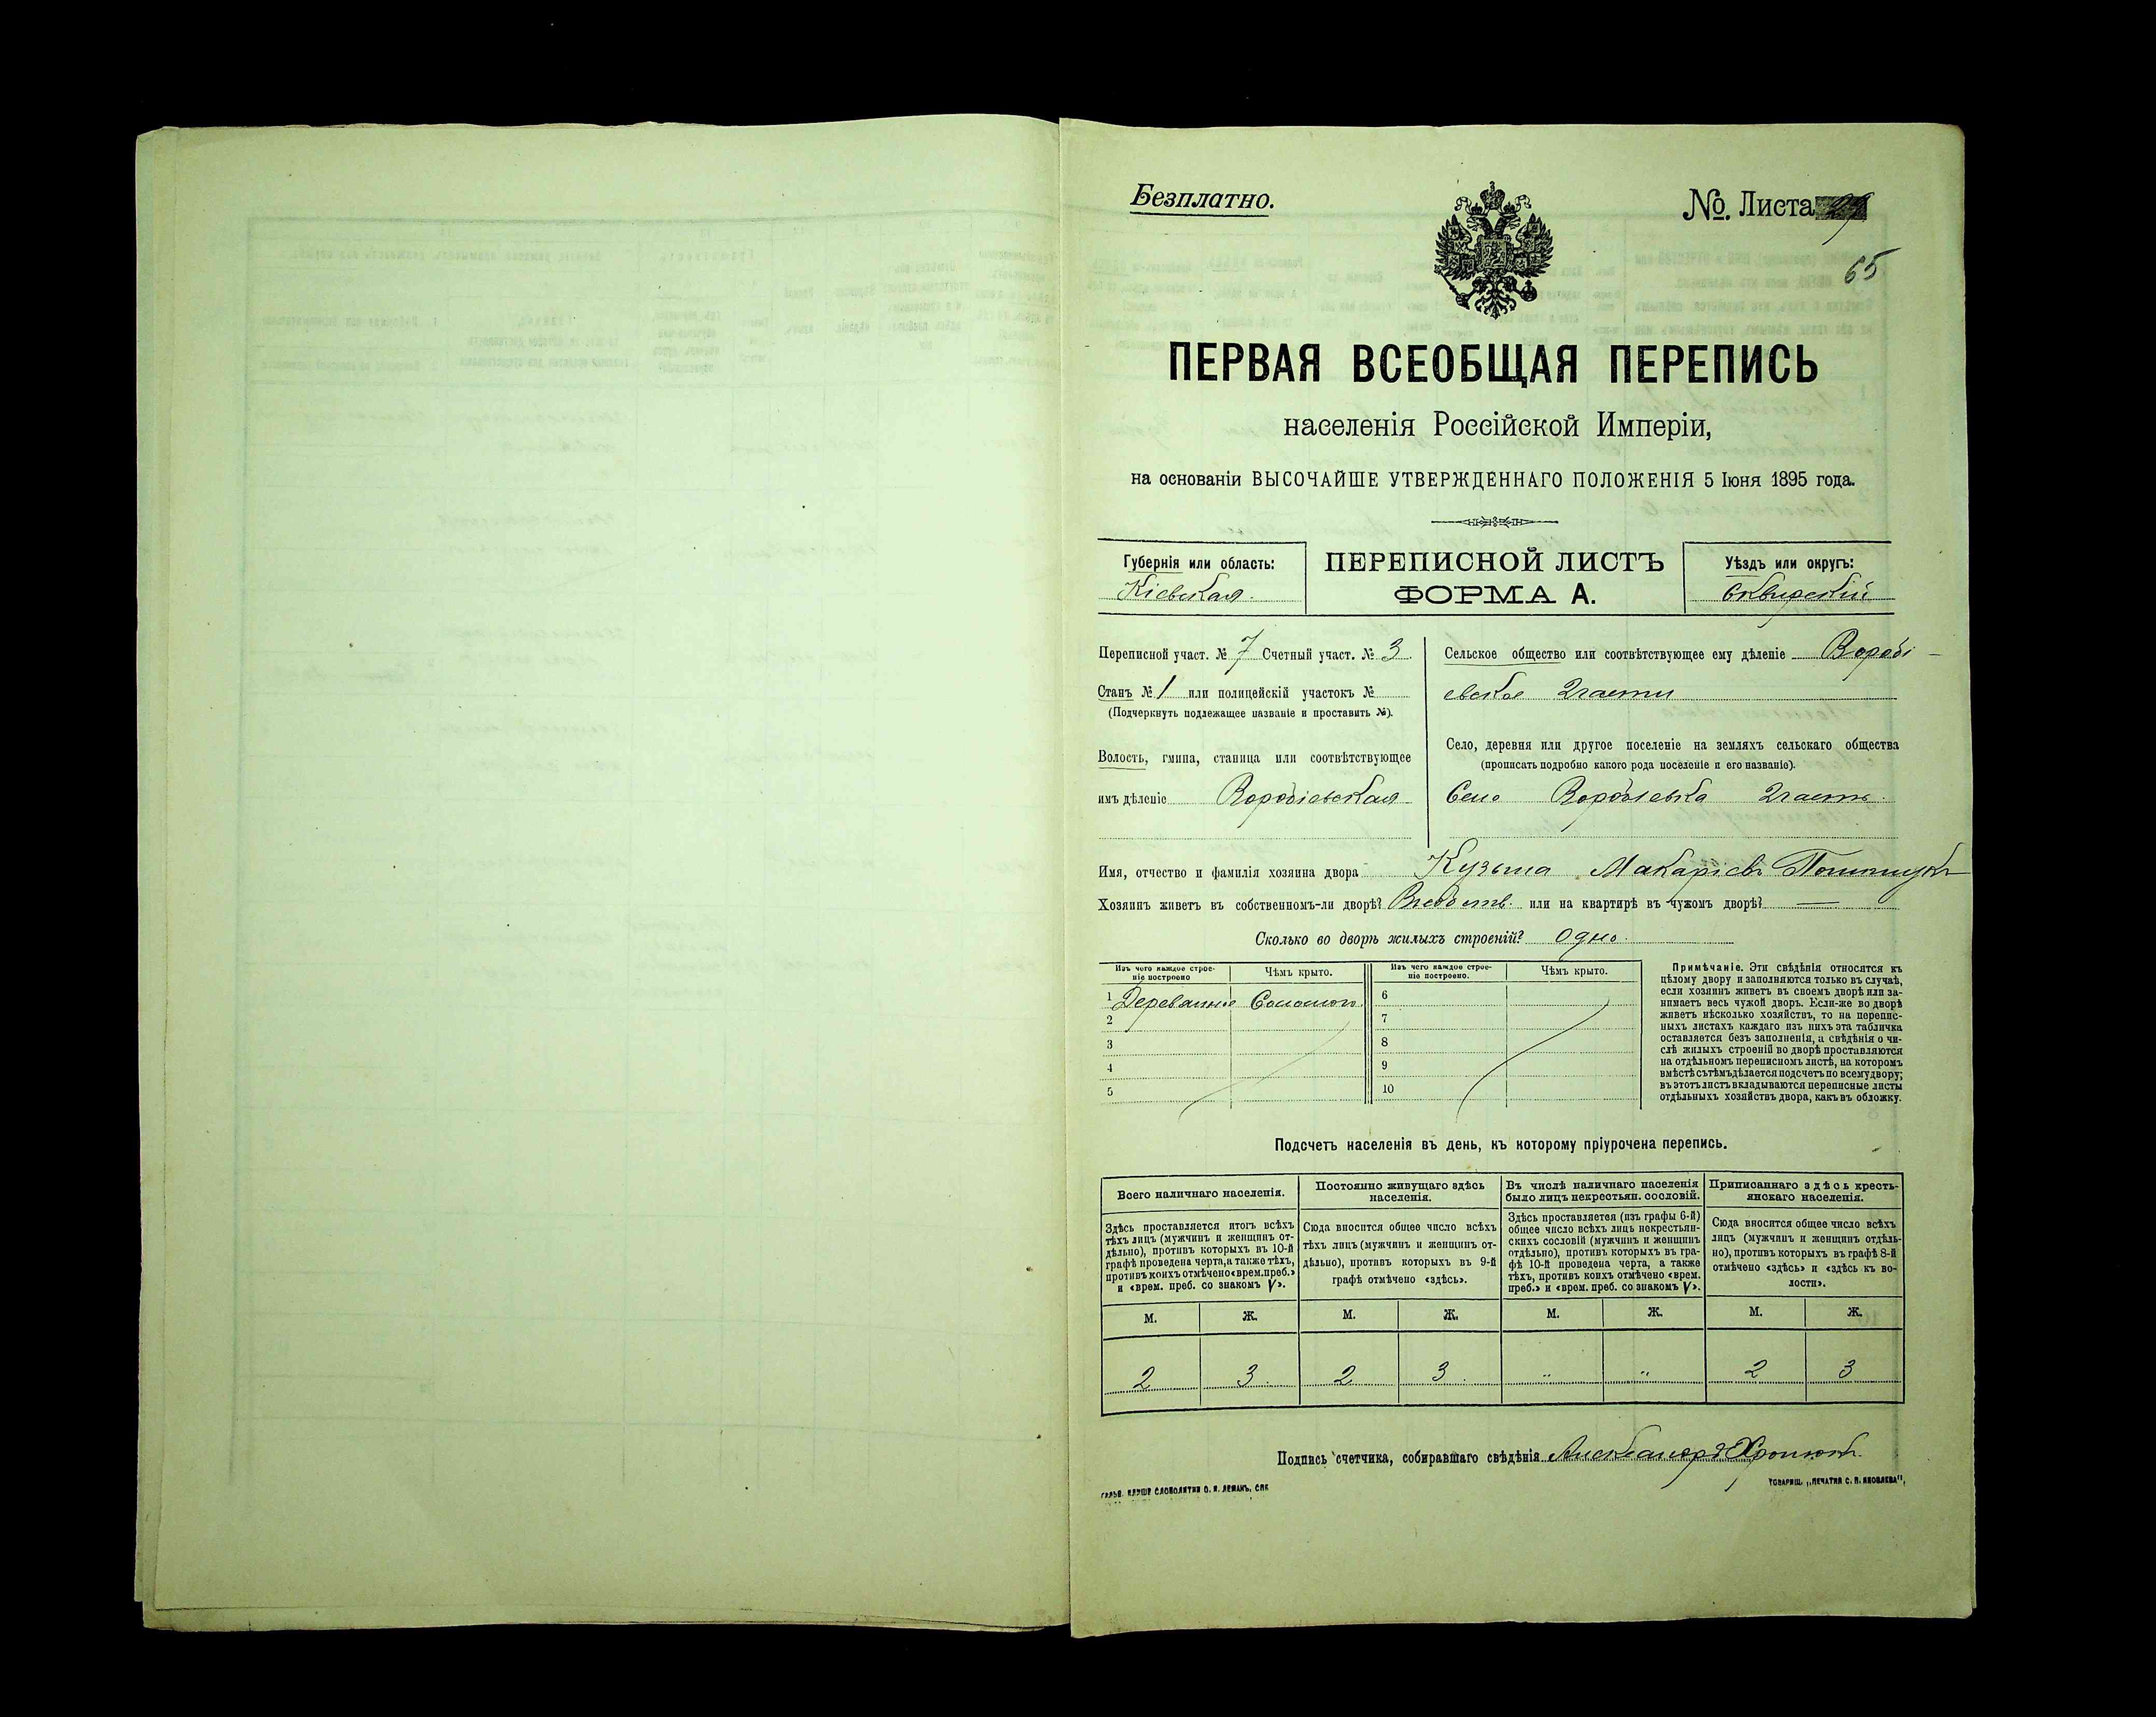 Безплатно.
№. Листа 29
65
ПЕРВАЯ ВСЕОБЩАЯ ПЕРЕПИСЬ
населенія Россійской Имперіи,
на основаніи ВЫСОЧАЙШЕ УТВЕРЖДЕННАГО ПОЛОЖЕНІЯ 5 Іюня 1895 года.
Губернія или область:
Кіевская
ПЕРЕПИСНОЙ ЛИСТЪ
ФОРМА А.
Уѣздъ или округъ:
Сквирскій
Переписной участ. № 7 Счетный участ. № 3
Станъ № 1 или полицейскій участокъ №
(Подчеркнуть подлежащее названіе и проставить №).
Волость, гмина, станица или соотвѣтствующее
имъ дѣленіе Воробіевская
Сельское общество или соотвѣтствующее ему дѣленіе Воробі-
евское 2 части
Село, деревня или другое поселеніе на земляхъ сельскаго общества
(прописать подробно какого рода поселеніе и его названіе).
Село Воробіевка 2 часть
Имя, отчество и фамилія хозяина двора Кузьма Макаріевъ
Хозяинъ живетъ въ собственномъ-ли дворѣ? или на квартирѣ въ чужомъ дворѣ? —
Сколько во дворѣ жилыхъ строеній? Одно
Изъ чего каждое строе-
ніе построено
Чѣмъ крыто.
Изъ чего каждое строе-
ніе построено.
Чѣмъ крыто.
1 Деревянное Соломою
2
3
4
5
6
7
8
9
10
Примѣчаніе. Эти свѣдѣнія относятся къ
цѣлому двору и заполняются только въ случаѣ,
если хозяинъ живетъ въ своемъ дворѣ или за-
нимаетъ весь чужой дворъ. Если-же во дворѣ
живетъ нѣсколько хозяйствъ, то на перепис-
ныхъ листахъ каждаго изъ нихъ эта табличка
оставляется безъ заполненія, а свѣдѣнія о чи-
слѣ жилыхъ строеній во дворѣ проставляются
на отдѣльномъ переписномъ листѣ, на которомъ
вмѣстѣ съ тѣмъ дѣлается подсчетъ по всему двору;
въ этотъ листъ вкладываются переписные листы
отдѣльныхъ хозяйствъ двора, какъ въ обложку.
Подсчетъ населенія въ день, къ которому пріурочена перепись.
Всего наличнаго населенія.
Здѣсь проставляется итогъ всѣхъ
тѣхъ лицъ (мужчинъ и женщинъ от-
дѣльно), противъ которыхъ въ 10-й
графѣ проведена черта, а также тѣхъ,
противъ коихъ отмѣчено «врем. преб.»
и «врем. преб. со знакомъ V».
Постоянно живущаго здѣсь
населенія.
Сюда вносится общее число всѣхъ
тѣхъ лицъ (мужчинъ и женщинъ от-
дѣльно), противъ которыхъ въ 9-й
графѣ отмѣчено «здѣсь».
Въ числѣ наличнаго населенія
было лицъ некрестьян. сословій.
Здѣсь проставляется (изъ графы 6-й)
общее число всѣхъ лицъ некрестьян-
скихъ сословій (мужчинъ и женщинъ
отдѣльно), противъ которыхъ въ гра-
фѣ 10-й проведена черта, а также
тѣхъ, противъ коихъ отмѣчено «врем.
преб.» и «врем. преб. со знакомъ V».
Приписаннаго здѣсь кресть-
янскаго населенія.
Сюда вносится общее число всѣхъ
лицъ (мужчинъ и женщинъ отдѣль-
но), противъ которыхъ въ графѣ 8-й
отмѣчено «здѣсь» и «здѣсь къ во-
лости».
М. Ж. М. Ж. М. Ж. М. Ж.
2 3 2 3 " " 2 3
Подпись счетчика, собиравшаго свѣдѣнія Александръ
СЛОВОЛИТНИ О. И. ЛЕМАНЪ, СПБ
ТОВАРИЩ. „ПЕЧАТНЯ С. П. ЯКОВЛЕВА",